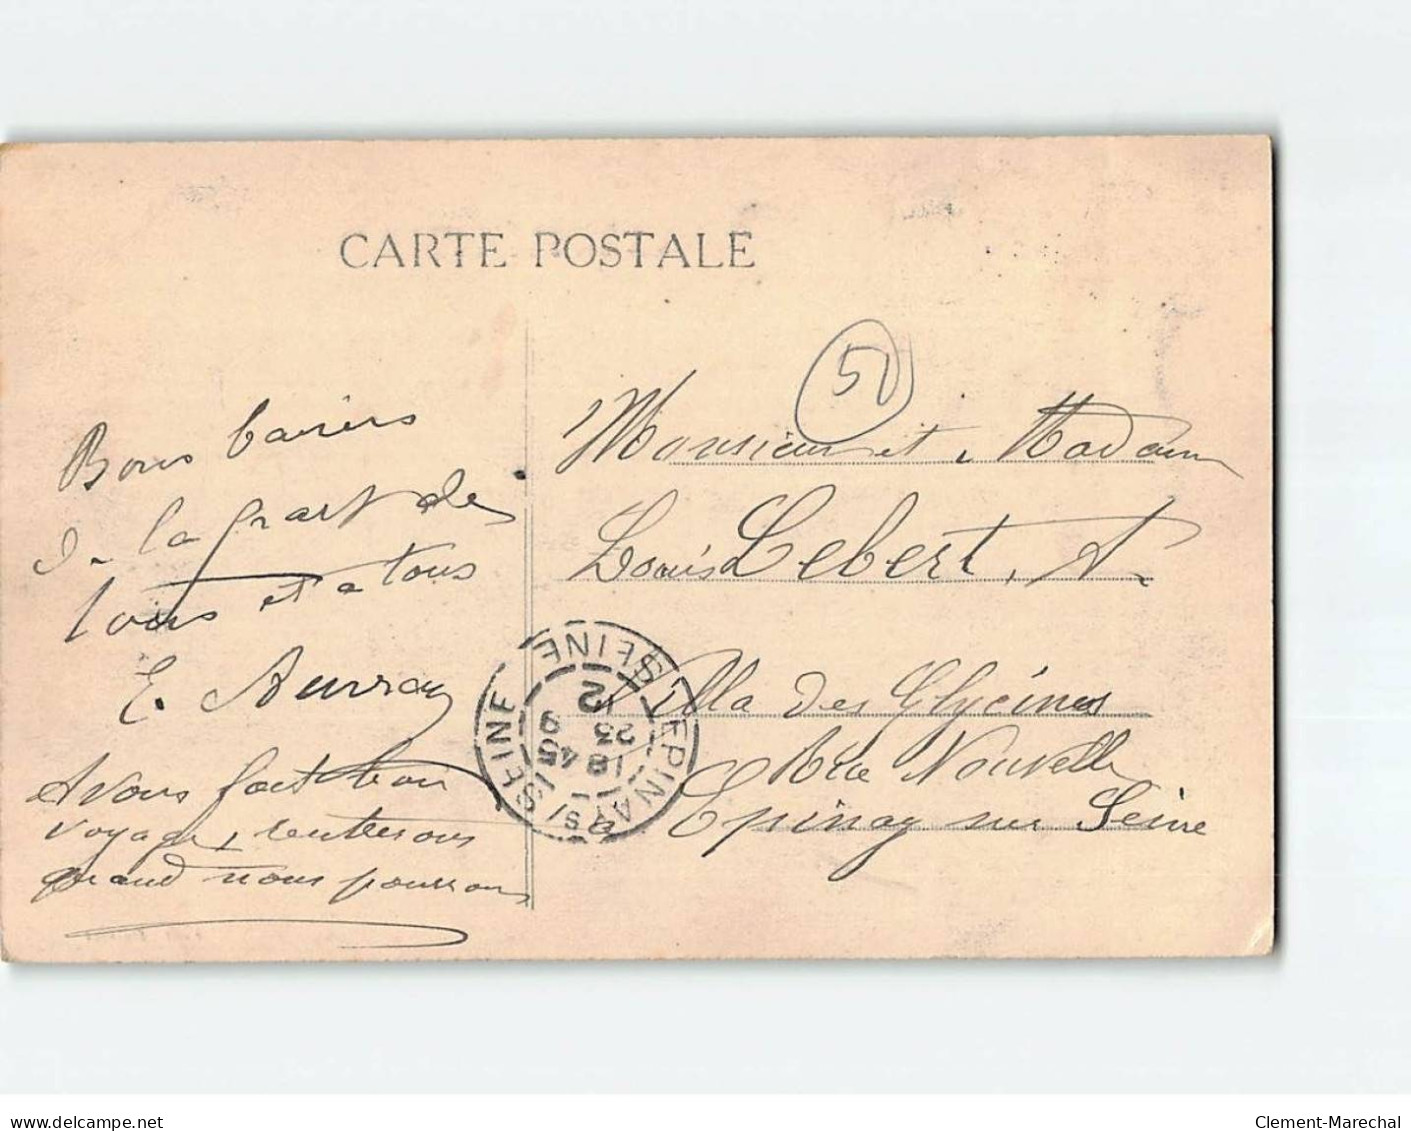 CARTE POSTALE
50
Bons baisers
de la part de
tous et a tous
E. Auvray
Avons fait bon
voyage, rentrerons
quand nous pourrons
Monsieur et Madame
Louis Lebert, A.
Villa des Glycines
Rue Nouvelle
Epinay sur Seine
EPINAY S/ SEINE
SEINE
18 45
23
9
delcampe.net
Clement-Marechal